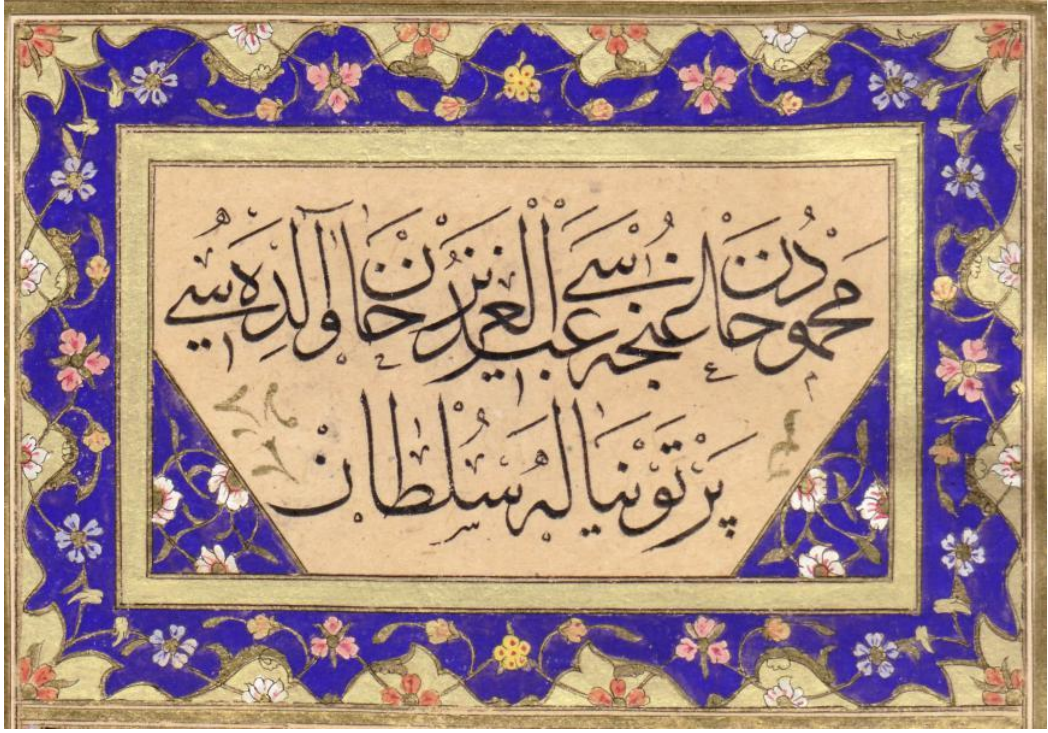 محمود خان غنجه سی عبد العزیز خان والده سی
پرتونیاله سلطان